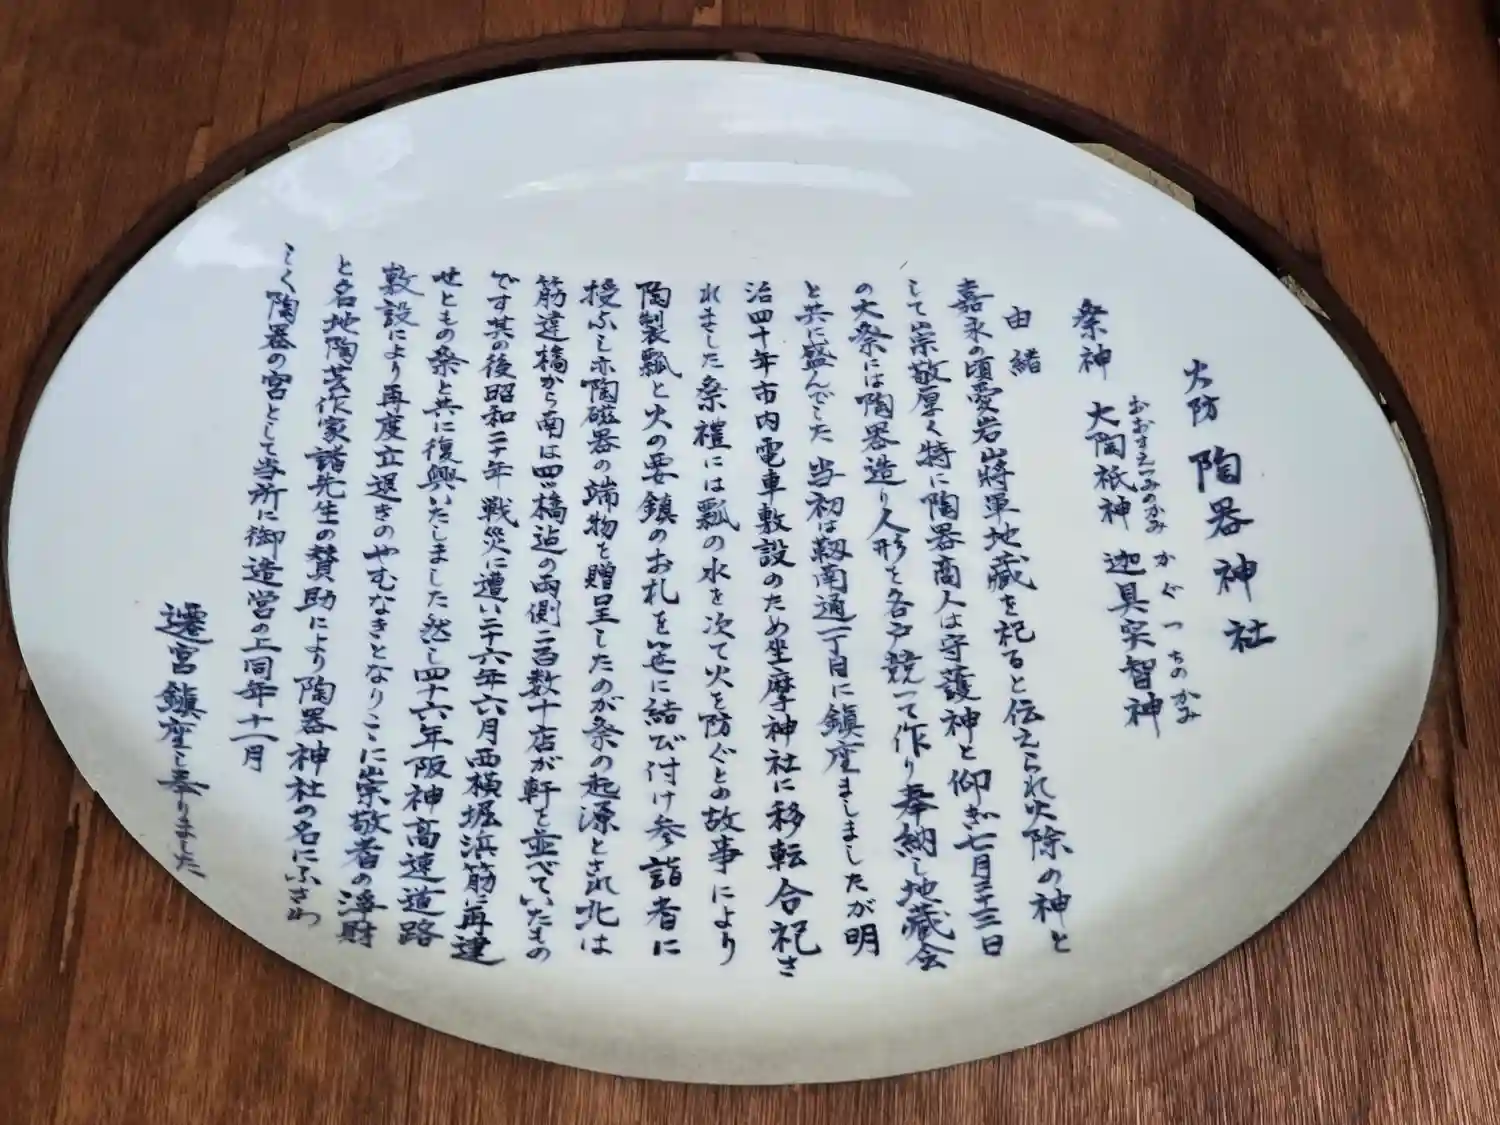 火防 陶器神社
祭神 大陶祇神 迦具突智神
おおすえつみのかみ かぐつちのかみ
由緒
嘉永の頃愛宕山將軍地藏を祀ると伝えられ火除の神と
して崇敬厚く特に陶器商人は守護神と仰ぎ七月二十三日
の大祭には陶器造り人形を各戸競って作り奉納し地藏会
と共に盛んでした 当初は靱南通一丁目に鎮座ましましたが明
治四十年市内電車敷設のため坐摩神社に移転合祀さ
れました祭禮には瓢の水を次て火を防ぐとの故事により
陶製瓢と火の要鎮のお札を笹に結び付け参詣者に
授ふし亦陶磁器の端物を贈呈したのが祭の起源とされ北は
筋違橋から南は四ツ橋迠の両側二百数十店が軒を並べていたもの
です其の後昭和二十年戦災に遭い二十六年六月西横堀浜筋に再建
せともの祭と共に復興いたしました然し四十六年阪神高速道路
敷設により再度立退きのやむなきとなりここに崇敬者の浄財
と名地陶芸作家諸先生の賛助により陶器神社の名にふさわ
しく陶器の宮として当所に御造営の上同年十一月
遷宮鎮座し奉りました